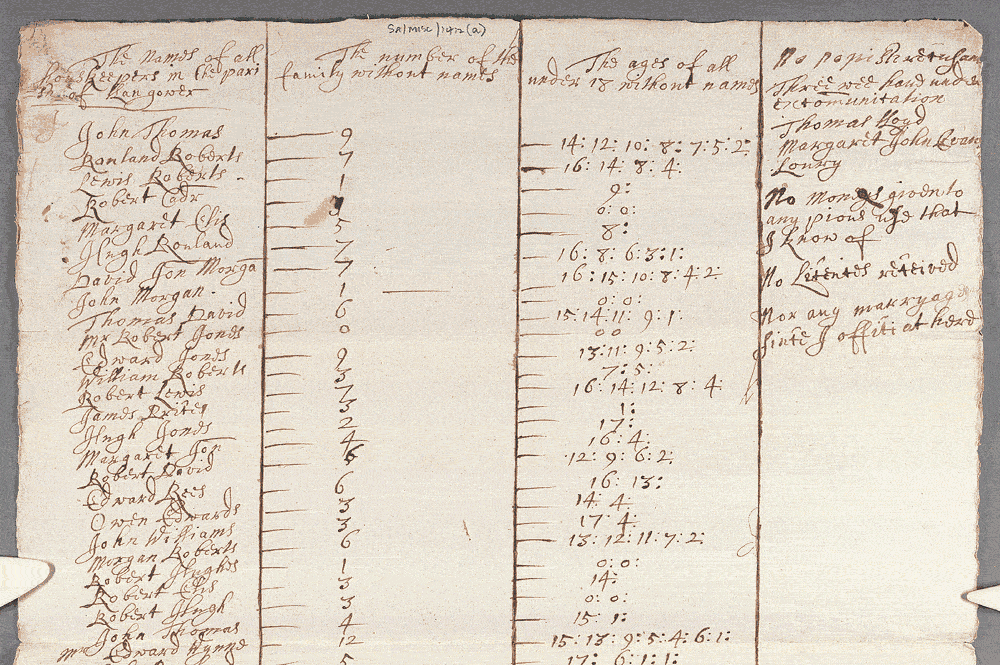 SA/MISC/1472(a)
The names of all
houskeepers in the pari
sh of Llangower
John Thomas
Rouland Roberts
Lewis Roberts
Robert Cadr
Margaret Elis
Hugh Rouland
David Jon Morga
John Morgan
Thomas David
Mr Robert Jones
Edward Jones
William Roberts
Robert Lewis
James
Hugh Jones
Margaret Jon
Robert David
Edward Rees
Owen Edwards
John Williams
Morgan Roberts
Robert Hughes
Robert Elis
Robert Hugh
John Thomas
Mr Edward Wynne
The number of the
family without names
9
7
1
3
5
7
7
1
6
0
9
3
7
3
2
4
6
6
3
3
6
1
3
3
4
12
5
The ages of all
under 18 without names
14: 12: 10: 8: 7: 5: 2:
16: 14: 8: 4:
9:
0: 0:
8:
16: 8: 6: 3: 1:
16: 15: 10: 8: 4: 2
0: 0:
15: 14: 11: 9: 1:
0 0
13: 11: 9: 5: 2:
7: 5:
16: 14: 12: 8: 4:
1:
17:
16: 4:
12: 9: 6: 2:
16: 13:
14: 4:
17: 4:
13: 12: 11: 7: 2:
0: 0:
14:
0: 0:
15: 1:
15: 13: 9: 5: 4: 6: 1:
17: 6: 1: 1:
No popish recusan
Three wee haud under
excomunication
Thomas lloyd
Margaret John Evan
Lowry
No moneys given to
any pious use that
I know of
No licences received
Nor any marryages
since I officiat here